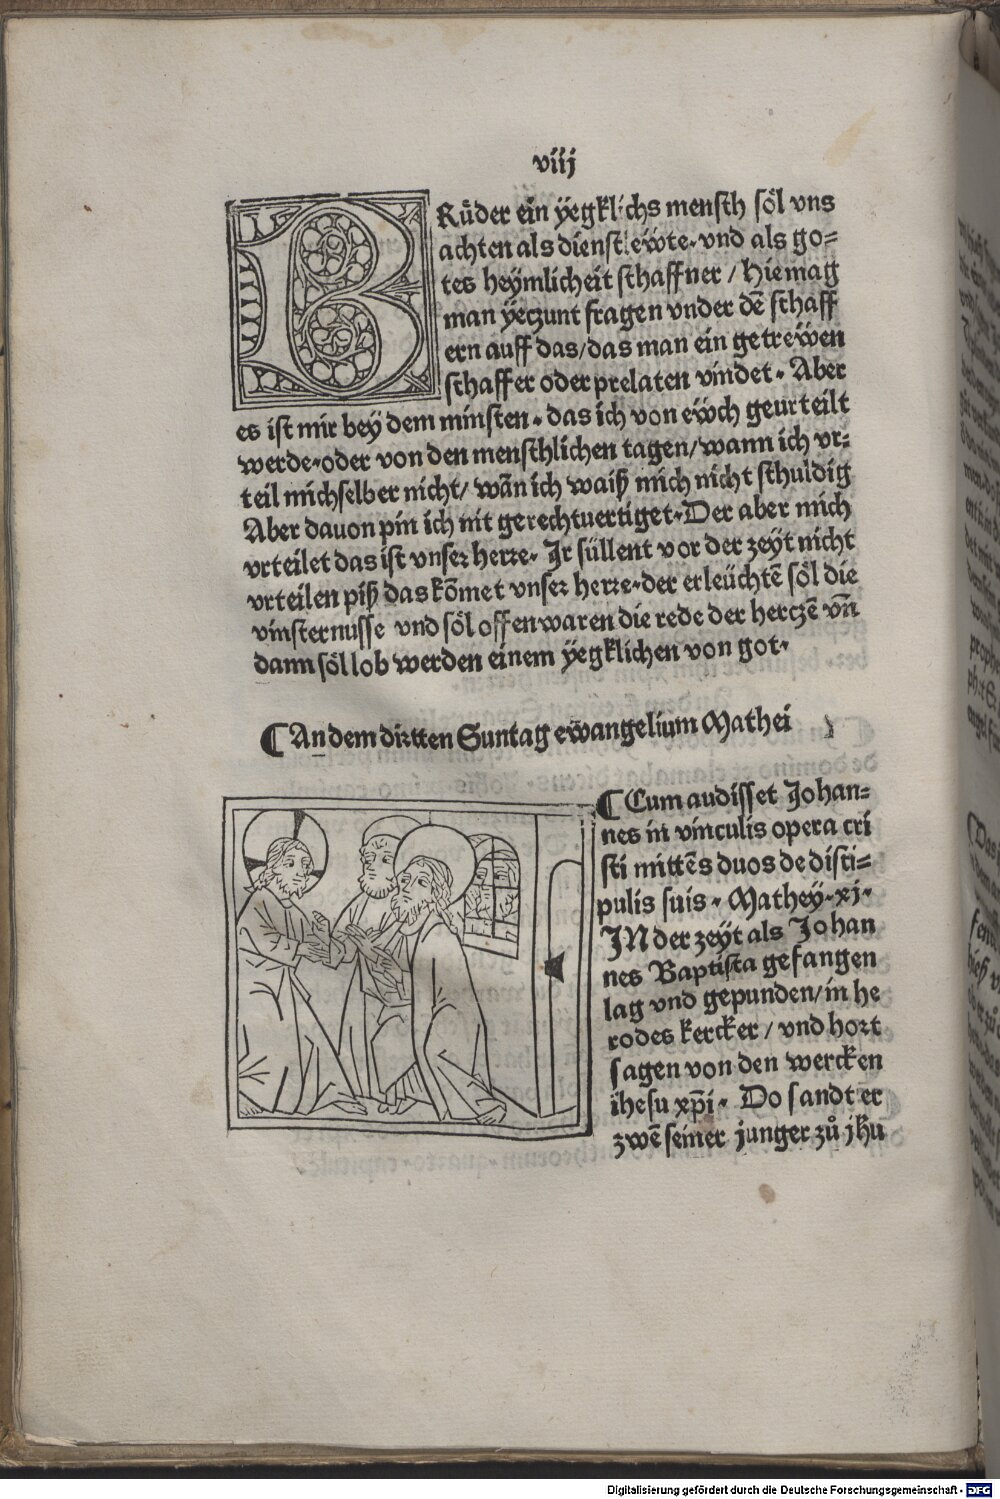 viij
BRůder ein ÿegklichs mensch söl vns
achten als dienstlewte. vnd als go=
tes heÿmlicheit schaffner / Hie mag
man ÿeczunt fragen vnder dē schaff
ern auff das / das man ein getrewen
schaffer oder prelaten vindet. Aber
es ist mir beÿ dem minsten. das ich von ewch geurteilt
werde. oder von den menschlichen tagen / wann ich vr=
teil mich selber nicht / wān ich waiß mich nicht schuldig
Aber dauon pin ich nit gerechtuertiget. Der aber mich
vrteilet das ist vnser herre. Ir süllent vor der zeÿt nicht
vrteilen piß das kōmet vnser herre. der erleüchtē söl die
vinsternusse vnd söl offenwaren die rede der herczē vn̄
dann söl lob werden einem ÿegklichen von got.
¶ An dem dirtten Suntag ewangelium Mathei
¶ Cum audisset Johan=
nes in vinculis opera cri
sti mittēs duos de disci=
pulis suis. Matheÿ. xj.
IN der zeÿt als Johan
nes Baptista gefangen
lag vnd gepunden / in he
rodes kercker / vnd hort
sagen von den wercken
ihesu xp̄i. Do sandt er
zwē seiner junger zů jhū
Digitalisierung gefördert durch die Deutsche Forschungsgemeinschaft - DFG